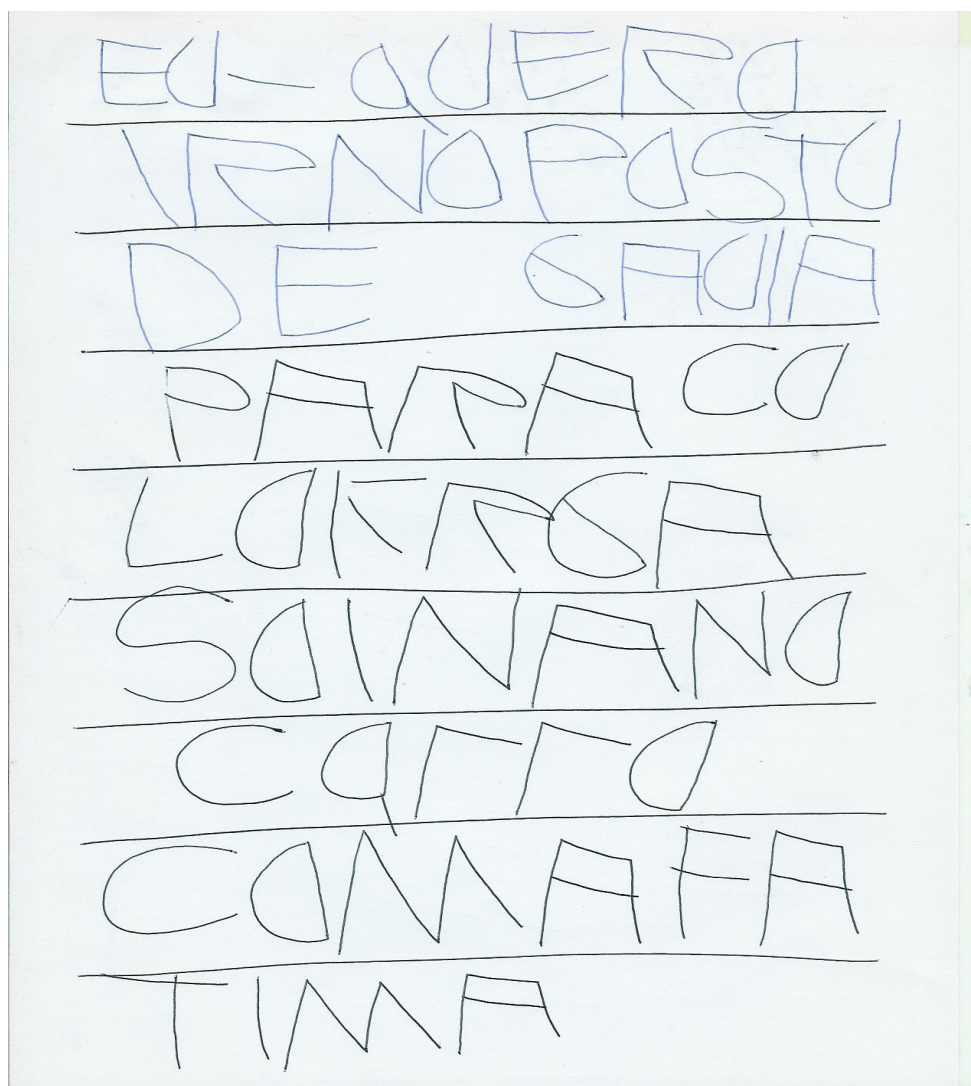 EU - QUERO
IRNOPOSTO
DE
PARA CO
LOKRGA
SOINANO
CQRRO
COMAFA
TIMA